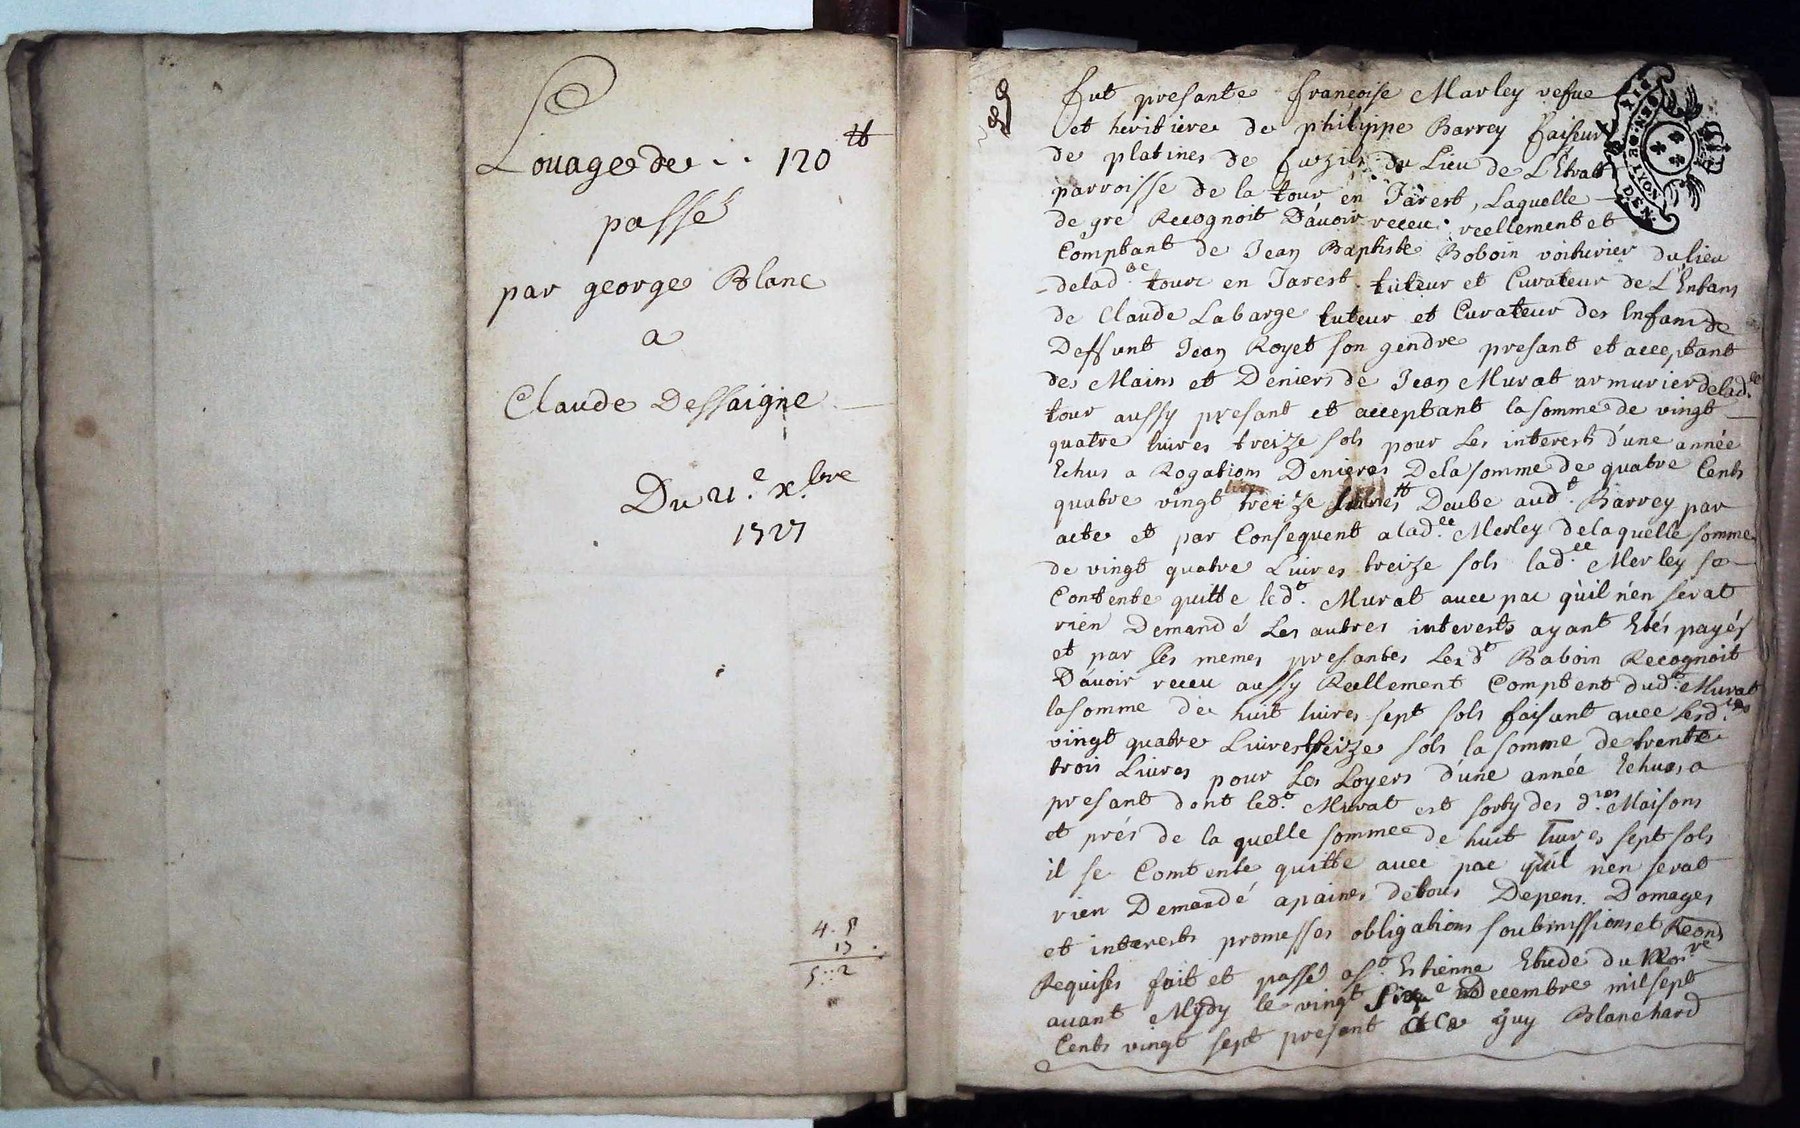 Louage de .. 120 tt
passé
par george Blanc
a
Claude Dessaigne
Du 21.e x.bre
1727
4 . 8
13 .
5 .. 2
fut presante francoise Marley vefue
et heritiere de philippe Barrey faiseur
de platines de fuzils du Lieu de L'Etrat
parroisse de la tour en Jarest, Laquelle
de gré Recognoit D'avoir receu reellement et
Comptant de Jean Baptiste Boboin voiturier du lieu
delad.e tour en Jarest tuteur et Curateur de L'Enfans
de Claude Labarge tuteur et Curateur des Enfans de
Deffunt Jean Royet son gendre presant et acceptant
des Mains et Deniers de Jean Murat armurier delad.e
tour aussy presant et acceptant la somme de vingt
quatre livres treize sols pour Les interests d'une année
Echus a Rogations Denieres De la somme de quatre Cents
quatre vingt treize tt Deube aud.t Barrey par
acte et par Consequent a lad.e Merley de laquelle somme
de vingt quatre Livres treize sols lad.e Merley se
Contente quitte led.t Murat avec pac qu'il n'en serat
rien Demandé Les autres interests ayant Etés payés
et par les memes presantes Led.t Baboin Recognoit
D'avoir receu aussy Reellement Comptent dud.t Murat
la somme de huit livres sept sols faisant avec Lesd.
vingt quatre Livres treize sols la somme de trente
trois Livres pour Les Loyers d'une année Echues a
presant dont led.t Murat est sorty des d.res Maisons
et prés de la quelle somme de huit livres sept sols
il se Comtente quitte avec pac quil n'en serat
rien Demandé a paines de tous Depens Domages
et interests promesses obligations soubmissions et Reons
Requises fait et passé a S.t Estienne Etude du No.re
avant Mydy le vingt Decembre mil sept
Cents vingt sept presant Guy Blanchard
DIX
GEN. DE LYON
DEN.